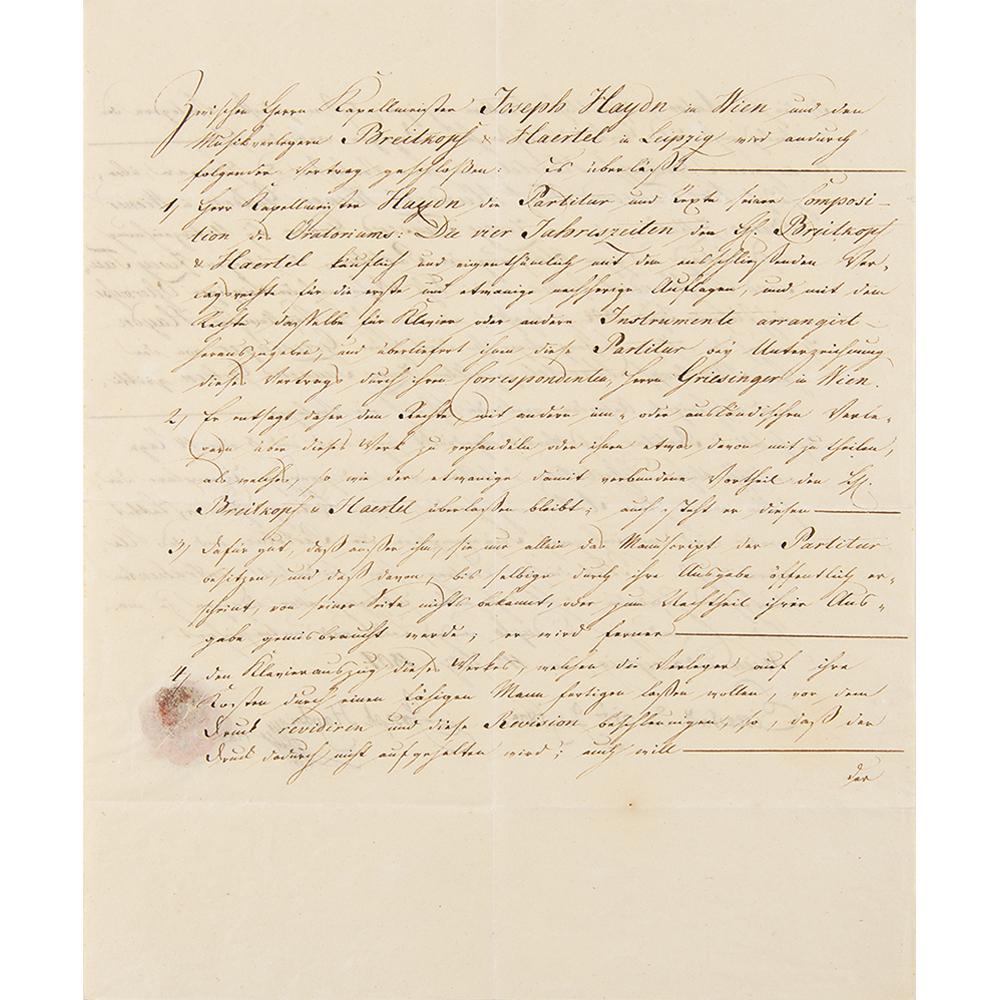 Zwischen Herrn Kapellmeister Joseph Haydn in Wien und den
Musikverlegern Breitkopf & Haertel in Leipzig wird andurch
folgender Vertrag geschloßen: Es überläßt
1) Herr Kapellmeister Haydn die Partitur und Texte seiner Composi-
tion des Oratoriums: Die vier Jahreszeiten den HH. Breitkopf
& Haertel käuflich und eigenthümlich mit dem ausschließenden Ver-
lagsrechte für die erste und etwanige nachherige Auflagen, und mit dem
Rechte dasselbe für Klavier oder andere Instrumente arrangirt
herauszugeben, und überliefert ihnen diese Partitur bey Unterzeichnung
dieses Vertrags durch ihren Correspondenten, Herrn Griesinger in Wien.
2) Er entsagt daher dem Rechte, mit andern inn- oder ausländischen Verle-
gern über dieses Werk zu verhandeln oder ihnen etwas davon mitzutheilen,
als welches, so wie der etwanige damit verbundene Vortheil den HH.
Breitkopf u Haertel überlaßen bleibt; auch steht er diesen
3) dafür gut, daß außer ihm, sie nur allein das Manuscript der Partitur
besitzen, und daß davon, bis selbige durch ihre Ausgabe öffentlich er-
scheint, von seiner Seite nichts bekannt, oder zum Nachtheil ihrer Aus-
gabe gemisbraucht werde; er wird ferner
4) den Klavierauszug dieses Werkes, welchen die Verleger auf ihre
Kosten durch einen fähigen Mann fertigen laßen wollen, vor dem
Druck revidiren und diese Revision beschleunigen, so, daß der
Druck dadurch nicht aufgehalten wird; auch will
der